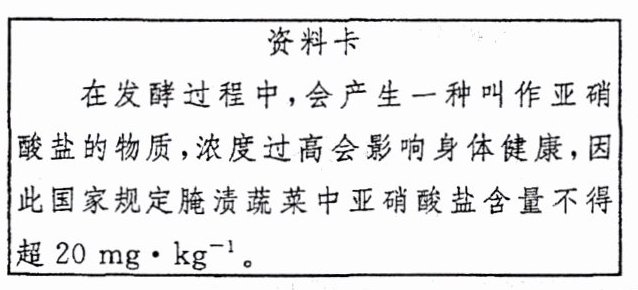 资料卡
在发酵过程中,会产生一种叫作亚硝
酸盐的物质,浓度过高会影响身体健康,因
此国家规定腌渍蔬菜中亚硝酸盐含量不得
超20 mg·kg⁻¹。